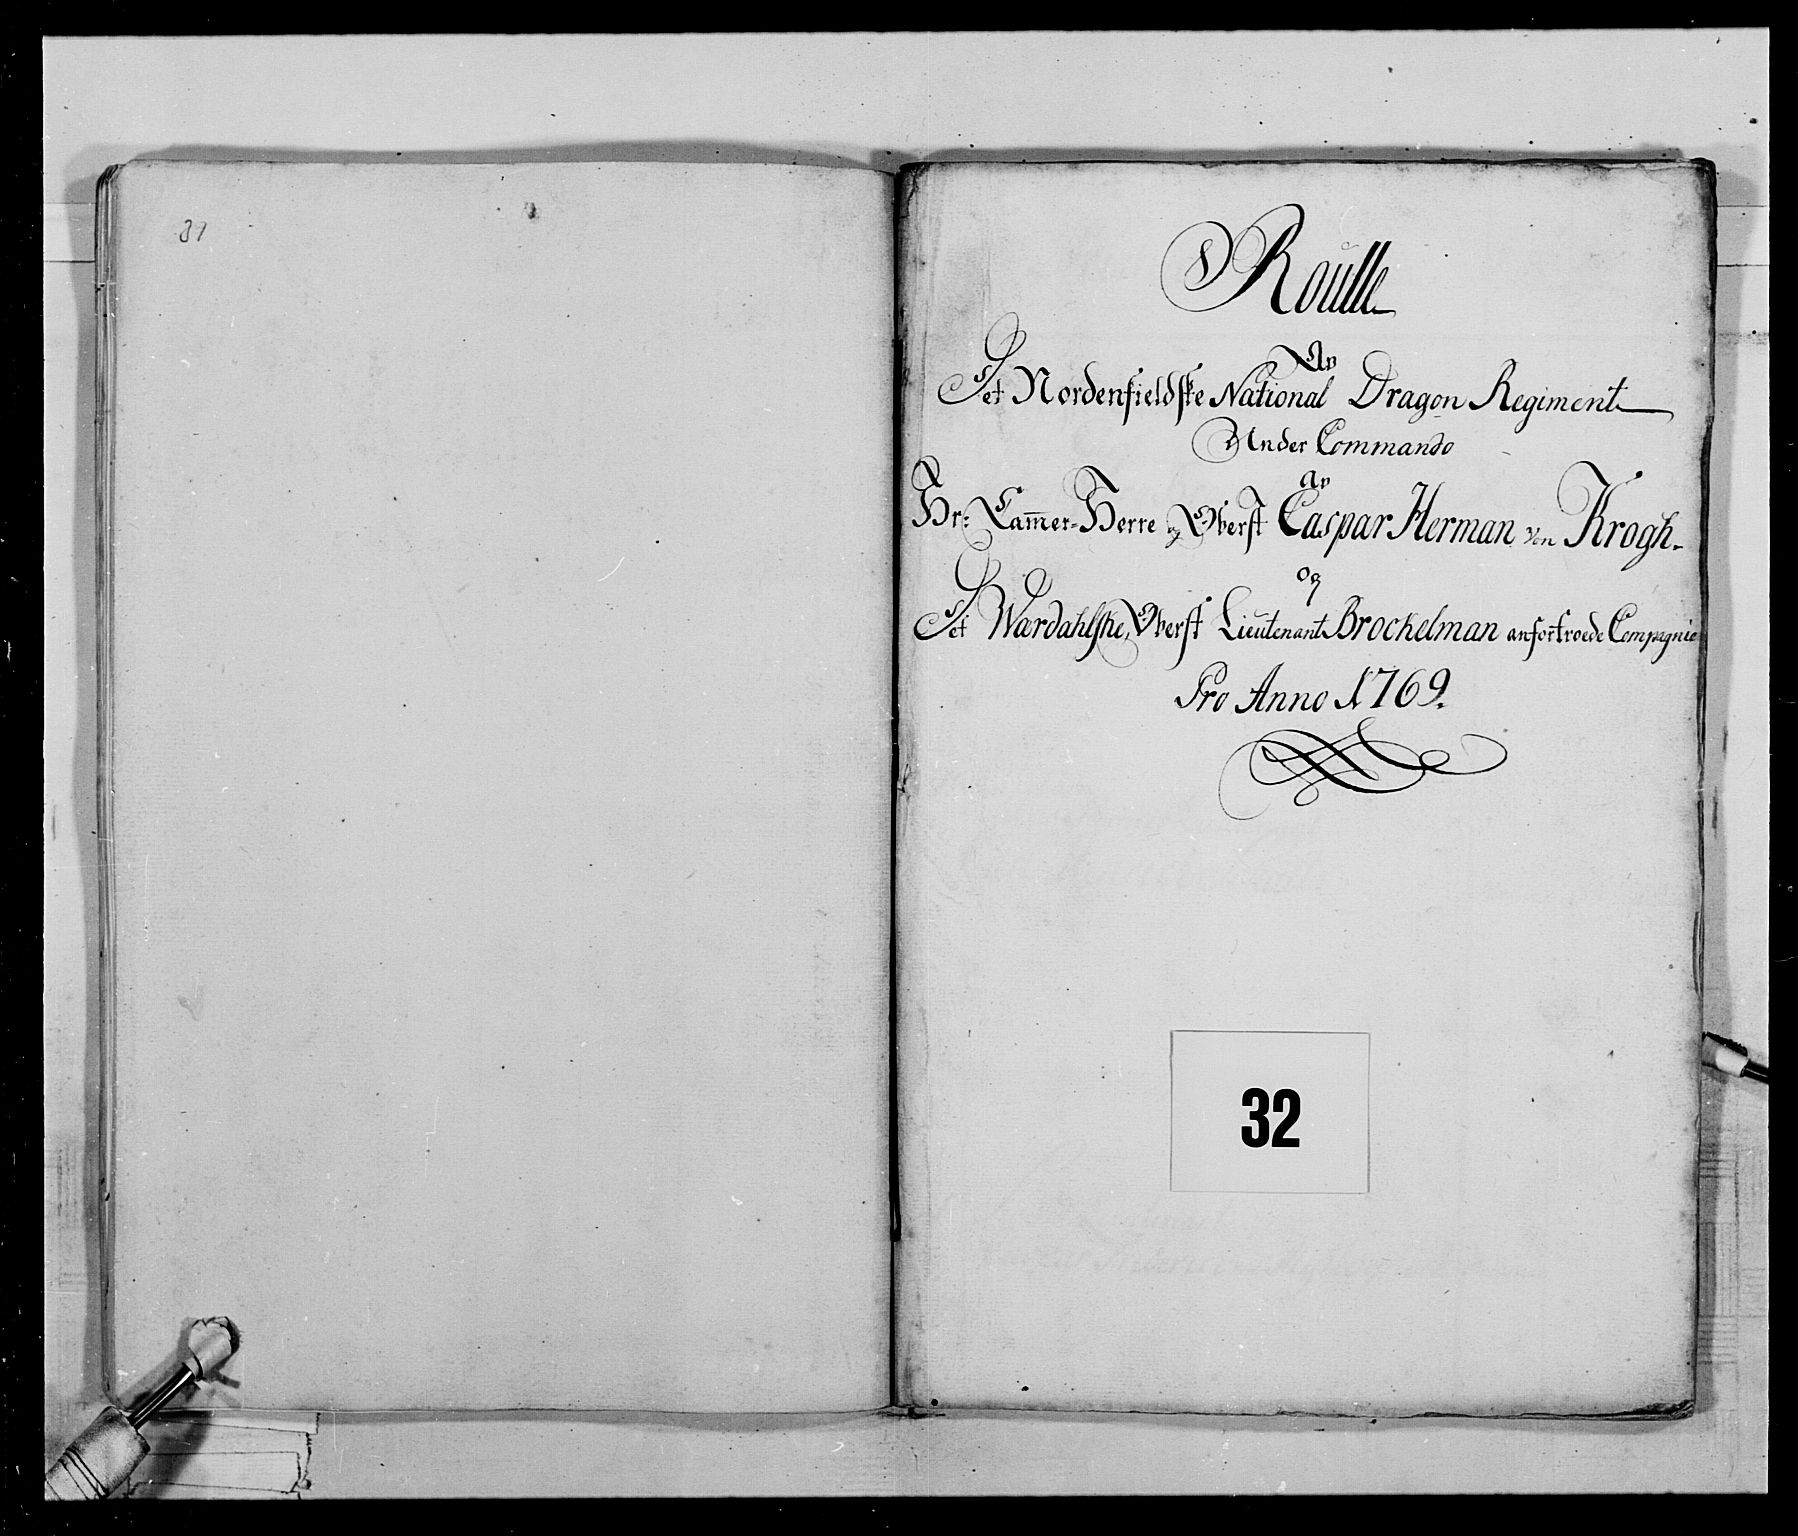 31
Roulle
Av
Det Nordenfieldske National Dragon Regiment
Under Commando
av
Hr: Cam̅er-Herre og Oberst Caspar Herman von Krogh.
og
Det Wærdahlske, Oberst Lieutenant Brockelman anfortroede Compagnie
Pro Anno 1769.
32